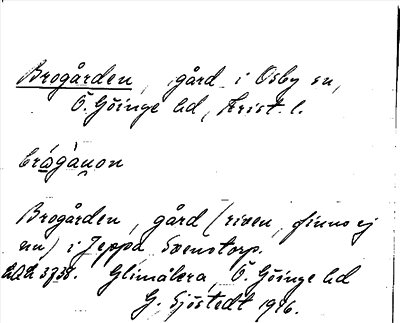 Brogården, gård i Osby sn,
Ö. Göinge hd, Krist. l.
brǻgànon
Brogården, gård (riven, finns ej
nu) i Jeppa, Svenstorp.
Glimåkra, Ö. Göinge hd
G. Sjöstedt 1926.